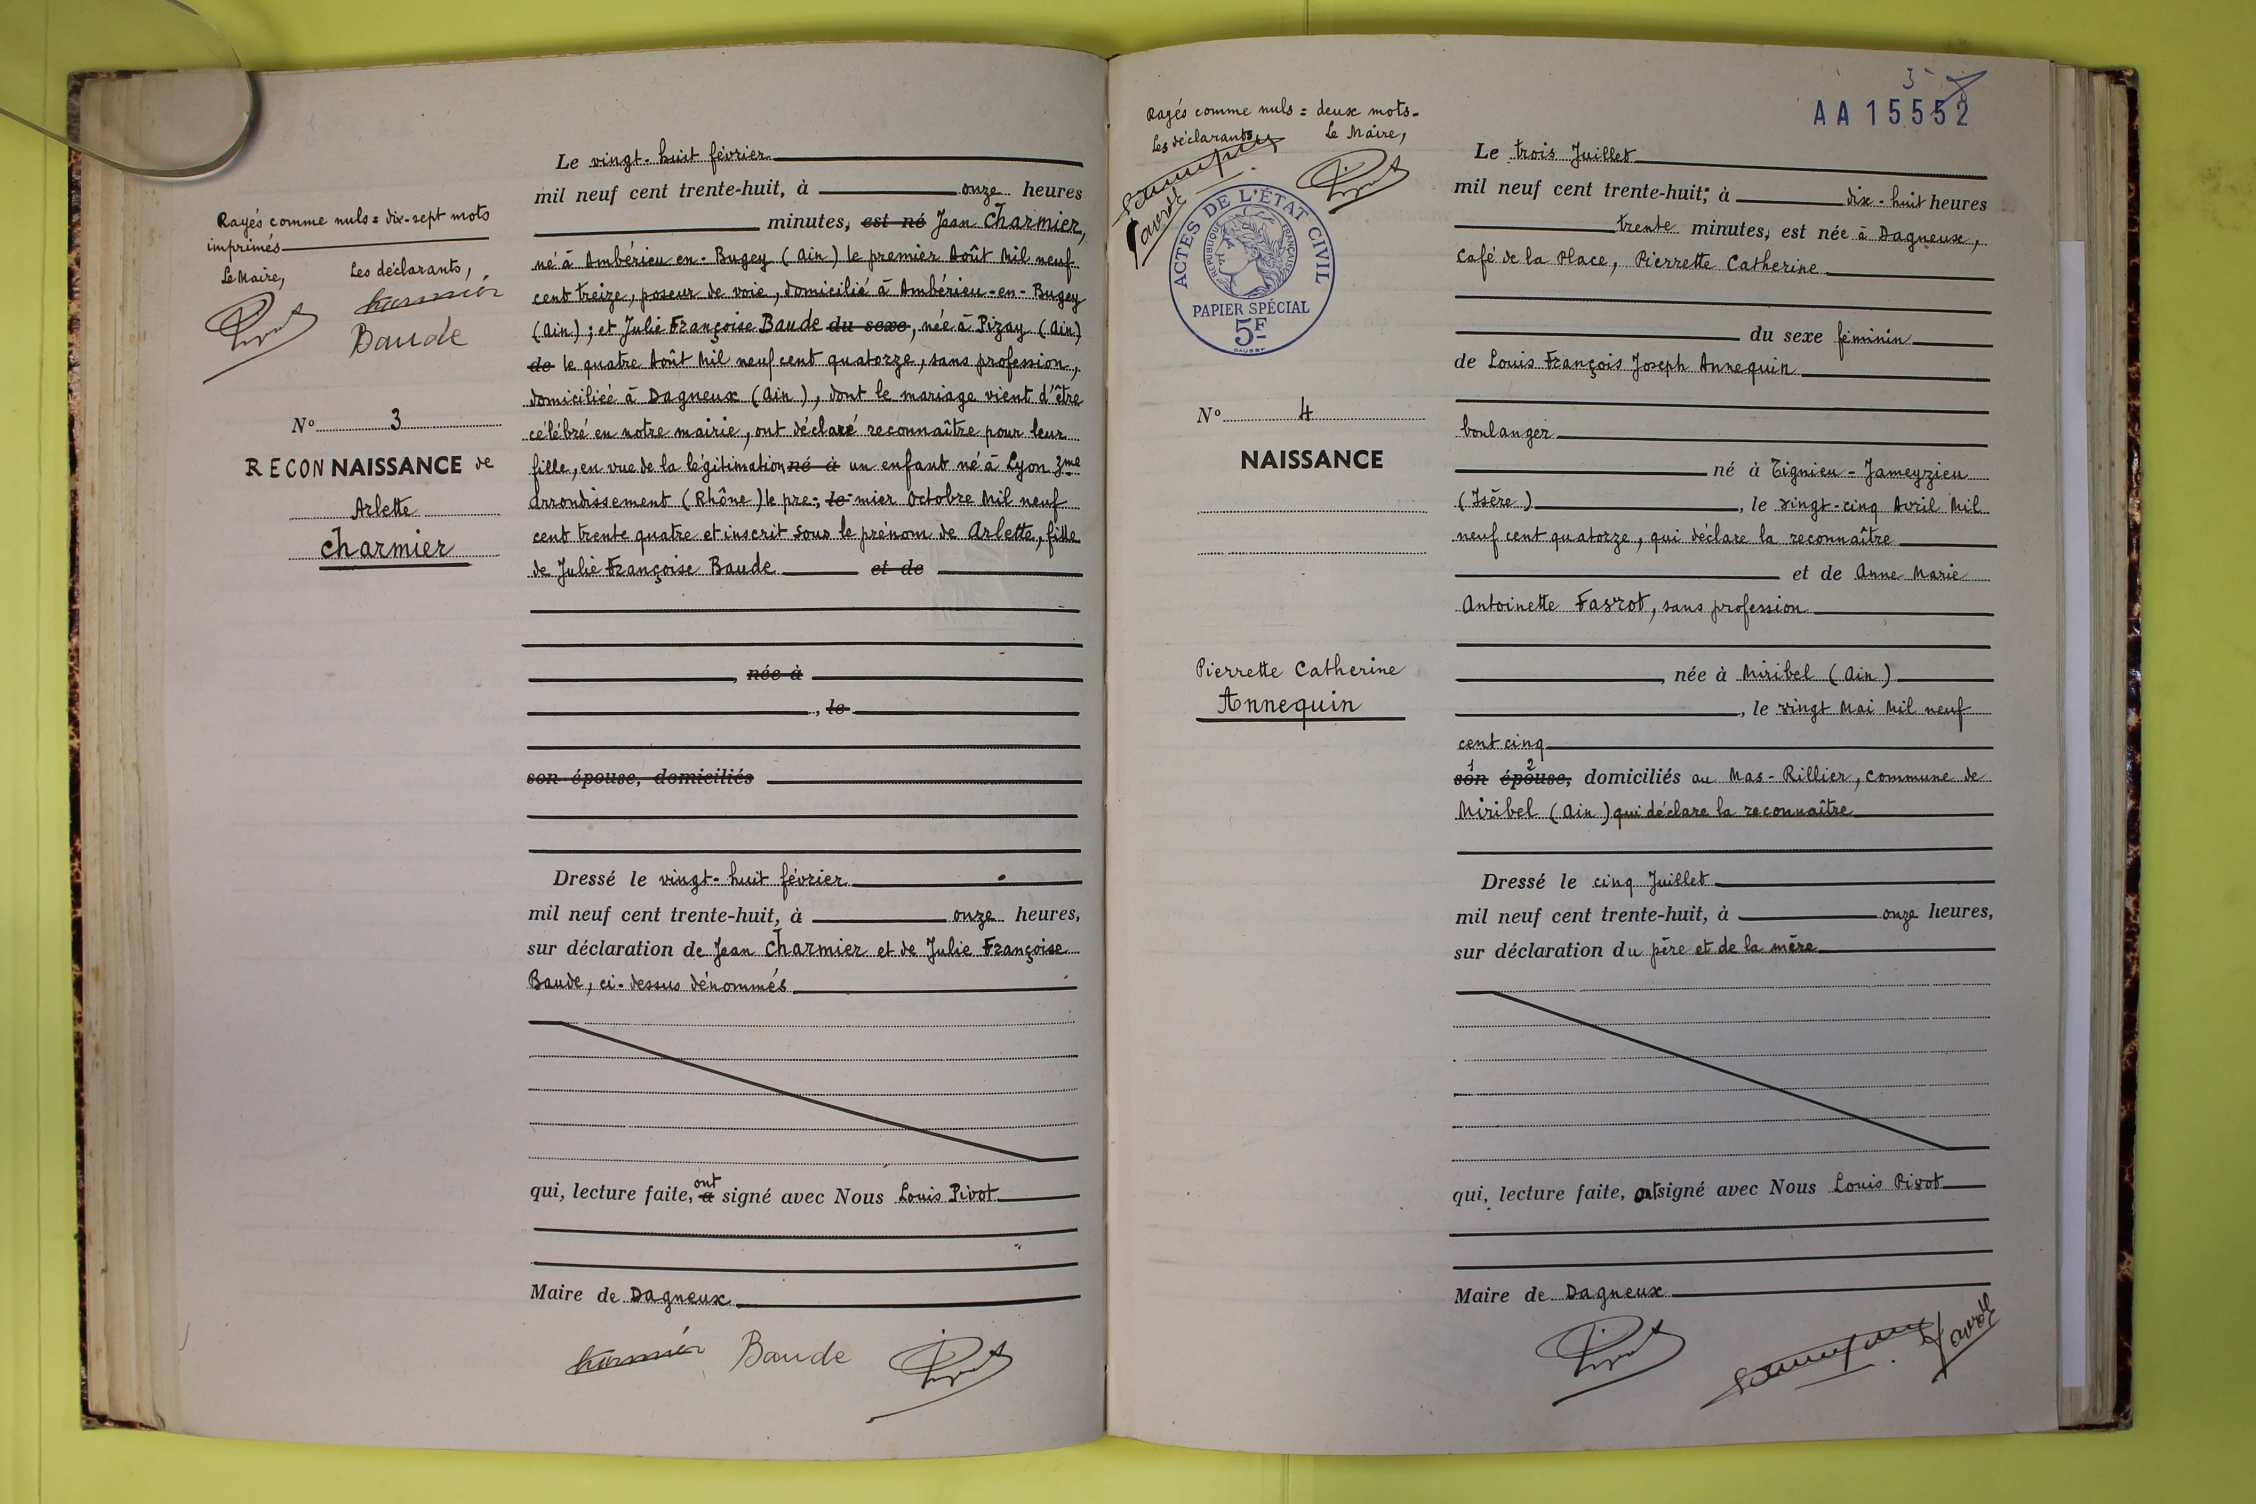 Rayés comme nuls = dix-sept mots
imprimés
Le Maire, Les déclarants,
Baude
N° 3
RECONNAISSANCE de
Arlette
Charmier
Le vingt-huit février
mil neuf cent trente-huit, à onze heures
minutes, est né Jean Charmier,
né à Ambérieu en-Bugey (Ain) le premier Août Mil neuf
cent treize, poseur de voie, domicilié à Ambérieu-en-Bugey
(Ain) ; et Julie Françoise Baude du sexe, née à Pizay (Ain)
de le quatre Août Mil neuf cent quatorze, sans profession,
domiciliée à Dagneux (Ain), dont le mariage vient d'être
célébré en notre mairie, ont déclaré reconnaître pour leur
fille, en vue de la légitimation né à un enfant né à Lyon 3me
Arrondissement (Rhône) le pre-, le mier Octobre Mil neuf
cent trente quatre et inscrit sous le prénom de Arlette, fille
de Julie Françoise Baude et de
, née à
, le
son épouse, domiciliés
Dressé le vingt-huit février
mil neuf cent trente-huit, à onze heures,
sur déclaration de Jean Charmier et de Julie Françoise
Baude, ci-dessus dénommés
ont
qui, lecture faite, a signé avec Nous Louis Pivot
Maire de Dagneux
Charmier Baude Pivot
Rayés comme nuls = deux mots-
Les déclarants Le Maire,
ACTES DE L'ÉTAT CIVIL
RÉPUBLIQUE FRANÇAISE
PAPIER SPÉCIAL
5F
N° 4
NAISSANCE
Pierrette Catherine
Annequin
3
AA 15552
Le trois Juillet
mil neuf cent trente-huit, à dix-huit heures
trente minutes, est née à Dagneux,
Café de la Place, Pierrette Catherine
du sexe féminin
de Louis François Joseph Annequin
boulanger
né à Tignieu-Jameyzieu
(Isère), le vingt-cinq Avril Mil
neuf cent quatorze, qui déclare la reconnaître
et de Anne Marie
Antoinette Favrot, sans profession
, née à Miribel (Ain)
, le vingt Mai Mil neuf
cent cinq
1 2
son épouse, domiciliés au Mas-Rillier, commune de
Miribel (Ain) qui déclare la reconnaître
Dressé le cinq Juillet
mil neuf cent trente-huit, à onze heures,
sur déclaration du père et de la mère
qui, lecture faite, ont signé avec Nous Louis Pivot
Maire de Dagneux